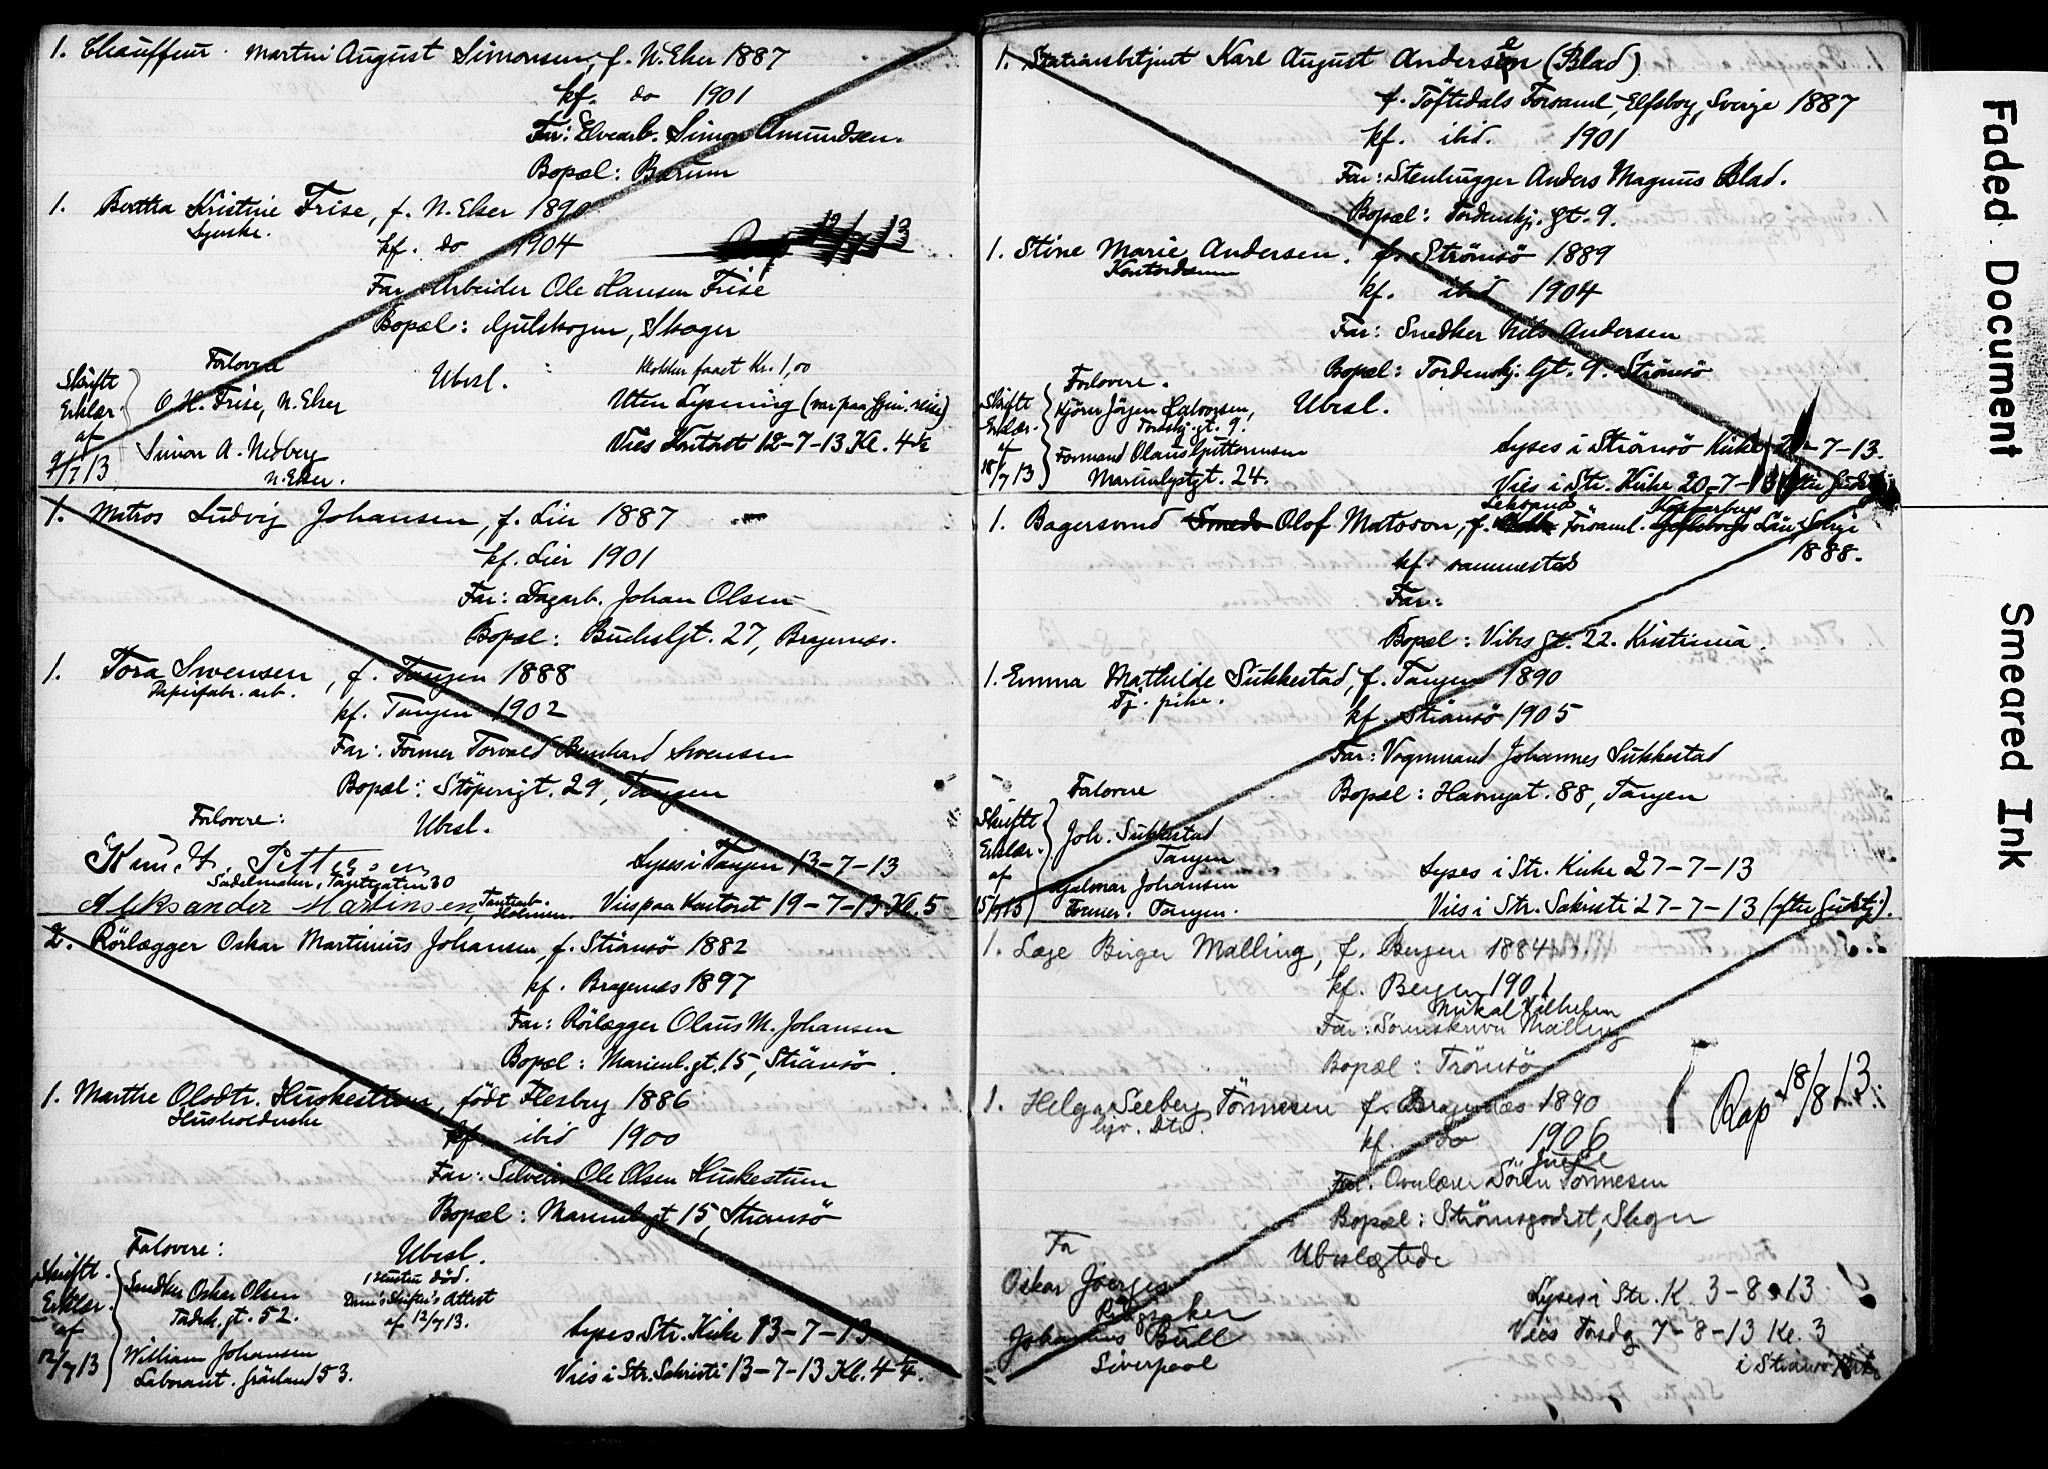 1. Chauffeur. Martin August Simonsen, f. N. Eker 1887
kf. do 1901
Far: Elvearb. Simon Amundsen.
Bopæl: Bærum
1. Bertha Kristine Frise, f. N. Eker 1890
Syerske.
kf. do 1904
Far Arbeider Ole Hansen Frise
Bopæl: Gulskogen, Skoger
Forlovere
Ubesl.
Klokker faaet Kr. 1,00
Skriftl. Erklær. af 9/7 13
O. H. Frise, N. Eker
Uten Lysning (var paa Gjen. reise)
Simon A. Nedberg
N. Eker.
Vies Kontoret 12-7-13 Kl. 4½
1. Matros Ludvig Johansen, f. Lier 1887
kf. Lier 1901
Far: Dagarb. Johan Olsen
Bopæl: Buchs Gt. 27, Bragernæs.
1. Tora Svensen, f. Tangen 1888
Papirfabr. arb.
kf. Tangen 1902
Far: Former Torvald Bernhard Svensen
Bopæl: Støperigt. 29, Tangen
Forlovere:
Ubesl.
Knut Pettersen
Sadelmaker, Tangegaten 30
Lyses i Tangen 13-7-13
Aleksander Martinsen
Vies paa Kontoret 19-7-13 Kl. 5
2. Rörlægger Oskar Martinius Johansen, f. Strömsö 1882
kf. Bragernæs 1897
Far: Rörlægger Olaus M. Johansen
Bopæl: Marienl. gt. 15, Strömsö.
1. Marthe Olsdtr. Huskestuen, födt Flesberg 1886
Husholderske
kf. ibid 1900
Far: Selveier Ole Olsen Huskestuen
Bopæl: Marienl. gt 15, Strömsö
Forlovere:
Ubesl.
Skriftl. Erklær. af 12/7 13
Snedker Oskar Olsen
Tordsk. gt. 52.
1 Hustru död.
Dram's Skifter's Attest
af 12/7 13.
Lyses Str. Kirke 13-7-13
William Johansen
Laborant. Grönland 53.
Vies i Str. Sakristi 13-7-13 Kl. 4 ¼.
1. Stationsbetjent Karl August Andersen (Blad)
f. Töftedals Forsaml, Elfsborg, Sverige 1887
kf. ibid. 1901
Far: Stenhugger Anders Magnus Blad.
Bopæl: Tordenskj. gt. 9.
1. Stine Marie Andersen. f. Strömsö 1889
Kontordame
kf. ibid 1904
Far: Snedker Nils Andersen
Bopæl: Tordenskj. Gt. 9. Strömsö
Forlovere.
Ubesl.
Skriftl. Erklær. af 18/7 13
Kjörer Jörgen Halvorsen,
Tordskj. gt. 9.
Formand Olaus Guttormsen
Marienlystgt. 24.
Lyses i Strömsö Kirke 20-7-13.
Vies i Str. Kirke 20-7-13
1. Bagersvend Olof Matsson, f. Leksand Församl. Kopparbergs Län Sverje
1888.
kf. sammested
Far:
Bopæl: Vibes gt. 22. Kristiania.
1. Emma Mathilde Sukkestad, f. Tangen 1890
Tj. pike.
kf. Strömsö 1905
Far: Vognmand Johannes Sukkestad
Bopæl: Havnegt. 88, Tangen
Forlovere
Skriftl. Erklær. af 15/7 13
Joh. Sukkestad
Tangen
Hjalmar Johansen
Former. Tangen.
Lyses i Str. Kirke 27-7-13
Vies i Str. Sakristi 27-7-13 (efter Gudstj).
1. Læge Birger Malling, f. Bergen 1884
kf. Bergen 1901
Mikal Vilhelm
Far: Sorenskriver Malling
Bopæl: Tromsö
1. Helga Seeberg Tönnesen f. Bragernæs 1890
kf. do 1906
Rap 18/8 13.
Juell
Far. Overlærer Sören Tönnesen
Bopæl: Strömsgodset, Skoger
Ubeslegtede
Oskar Joerges
Lyses i Str. K. 3-8-13
Johannes Bull
Liverpool
Vies Torsdag 7-8-13 Kl. 3
i Strömsö Kirke
Faded Document
Smeared Ink